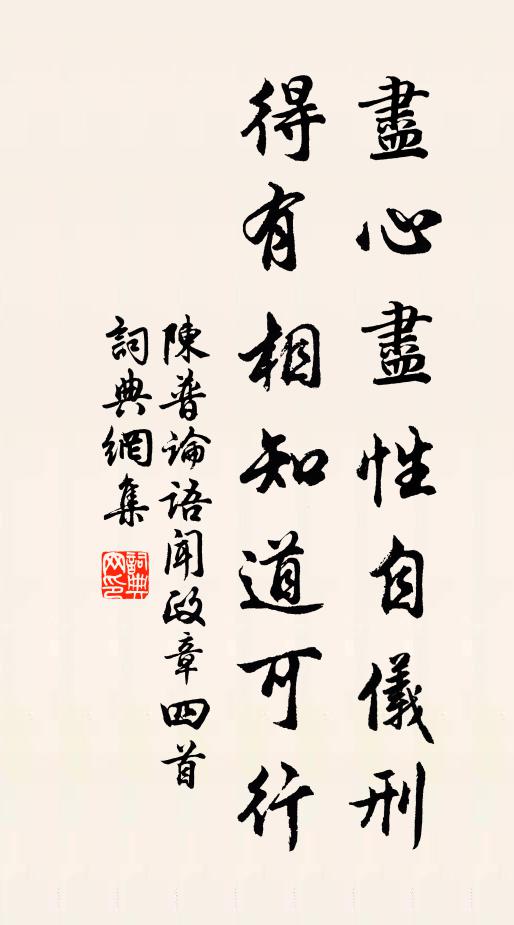 盡心盡性自儀刑
得有相知道可行
陳普論語聞政章四首
詞典網集
詞典网印